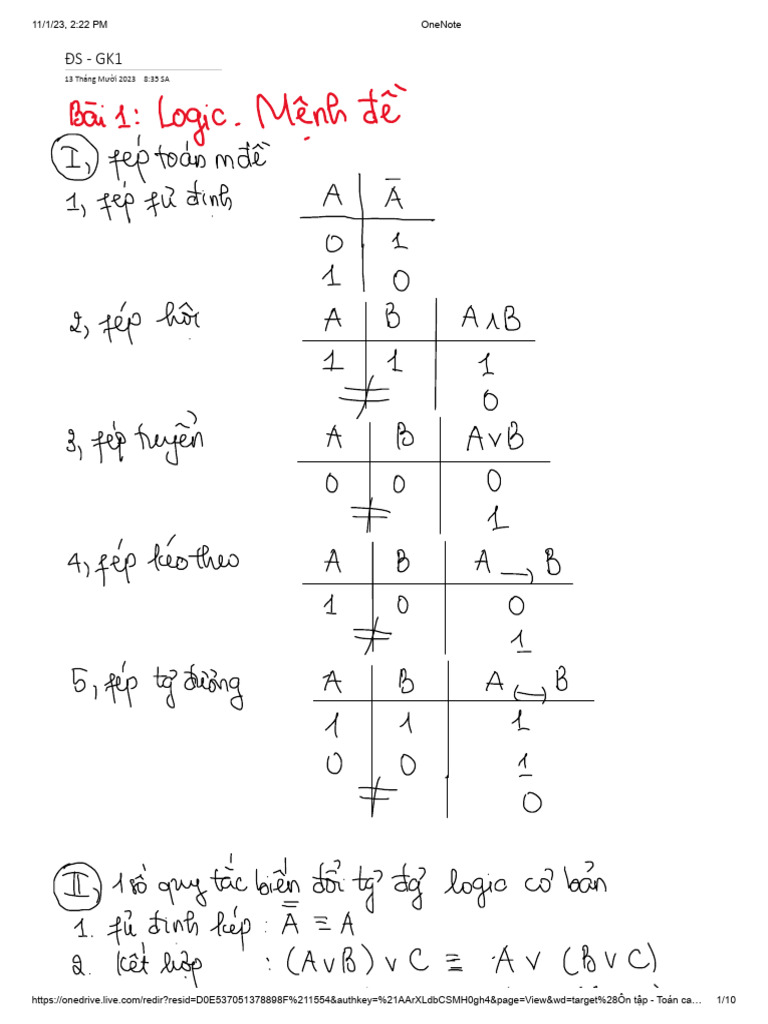 11/1/23, 2:22 PM OneNote
ĐS - GK1
13 Tháng Mười 2023 8:35 SA
Bài 1: Logic. Mệnh đề
I, fép toán mđề
1, fép fủ định
A Ā
0 1
1 0
2, fép hội
A B A∧B
1 1 1
≠ 0
3, fép tuyển
A B A∨B
0 0 0
≠ 1
4, fép kéo theo
A B A → B
1 0 0
≠ 1
5, fép tg đương
A B A ↔ B
1 1 1
0 0 1
≠ 0
II, 1 số quy tắc biến đổi tg đg logic cơ bản
1. fủ định kép : A̿ ≡ A
2. Kết hợp : (A∨B) ∨ C ≡ A∨ (B∨C)
https://onedrive.live.com/redir?resid=D0E537051378898F%211554&authkey=%21AArXLdbCSMH0gh4&page=View&wd=target%28Ôn tập - Toán ca… 1/10